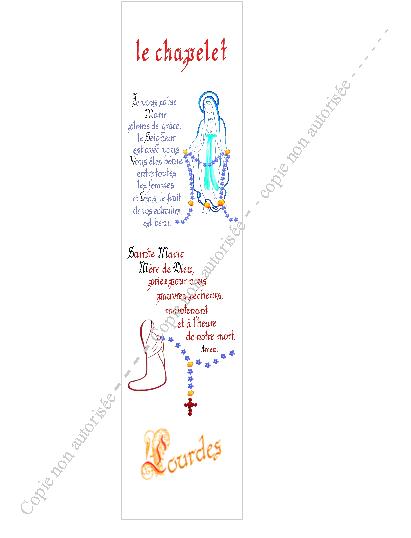 le chapelet
Je vous salue
Marie
pleine de grâce,
le Seigneur
est avec vous
Vous êtes bénie
entre toutes
les femmes
et Jésus, le fruit
de vos entrailles
est béni.
Sainte Marie
Mère de Dieu,
priez pour nous
pauvres pécheurs,
maintenant
et à l'heure
de notre mort.
Amen.
Lourdes
Copie non autorisée - - - - - Copie non autorisée - - - copie non autorisée - - - - -